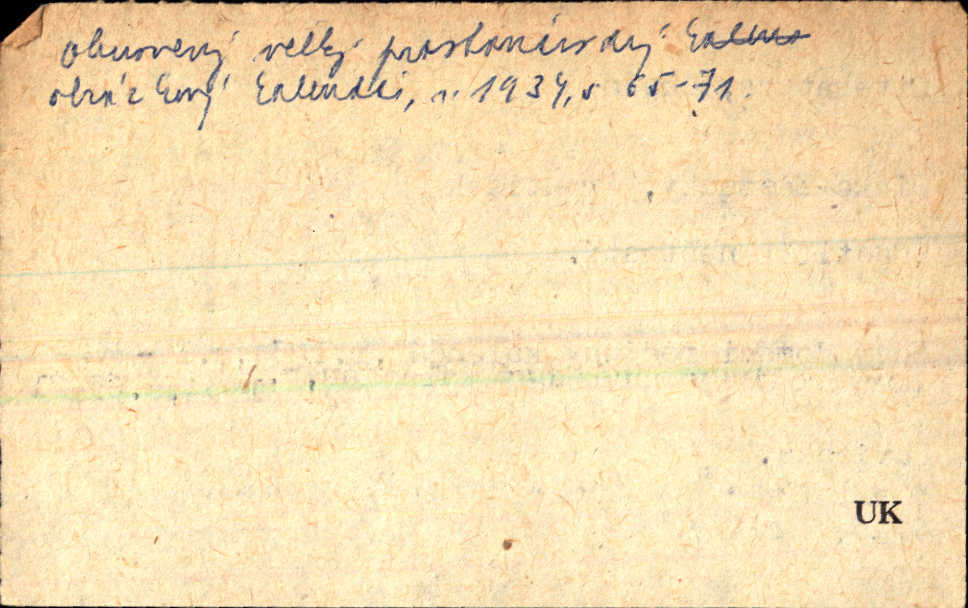 Obnovený velký prostonárodný kalen
obrázkový kalendár, r. 1934, s 65-71
UK